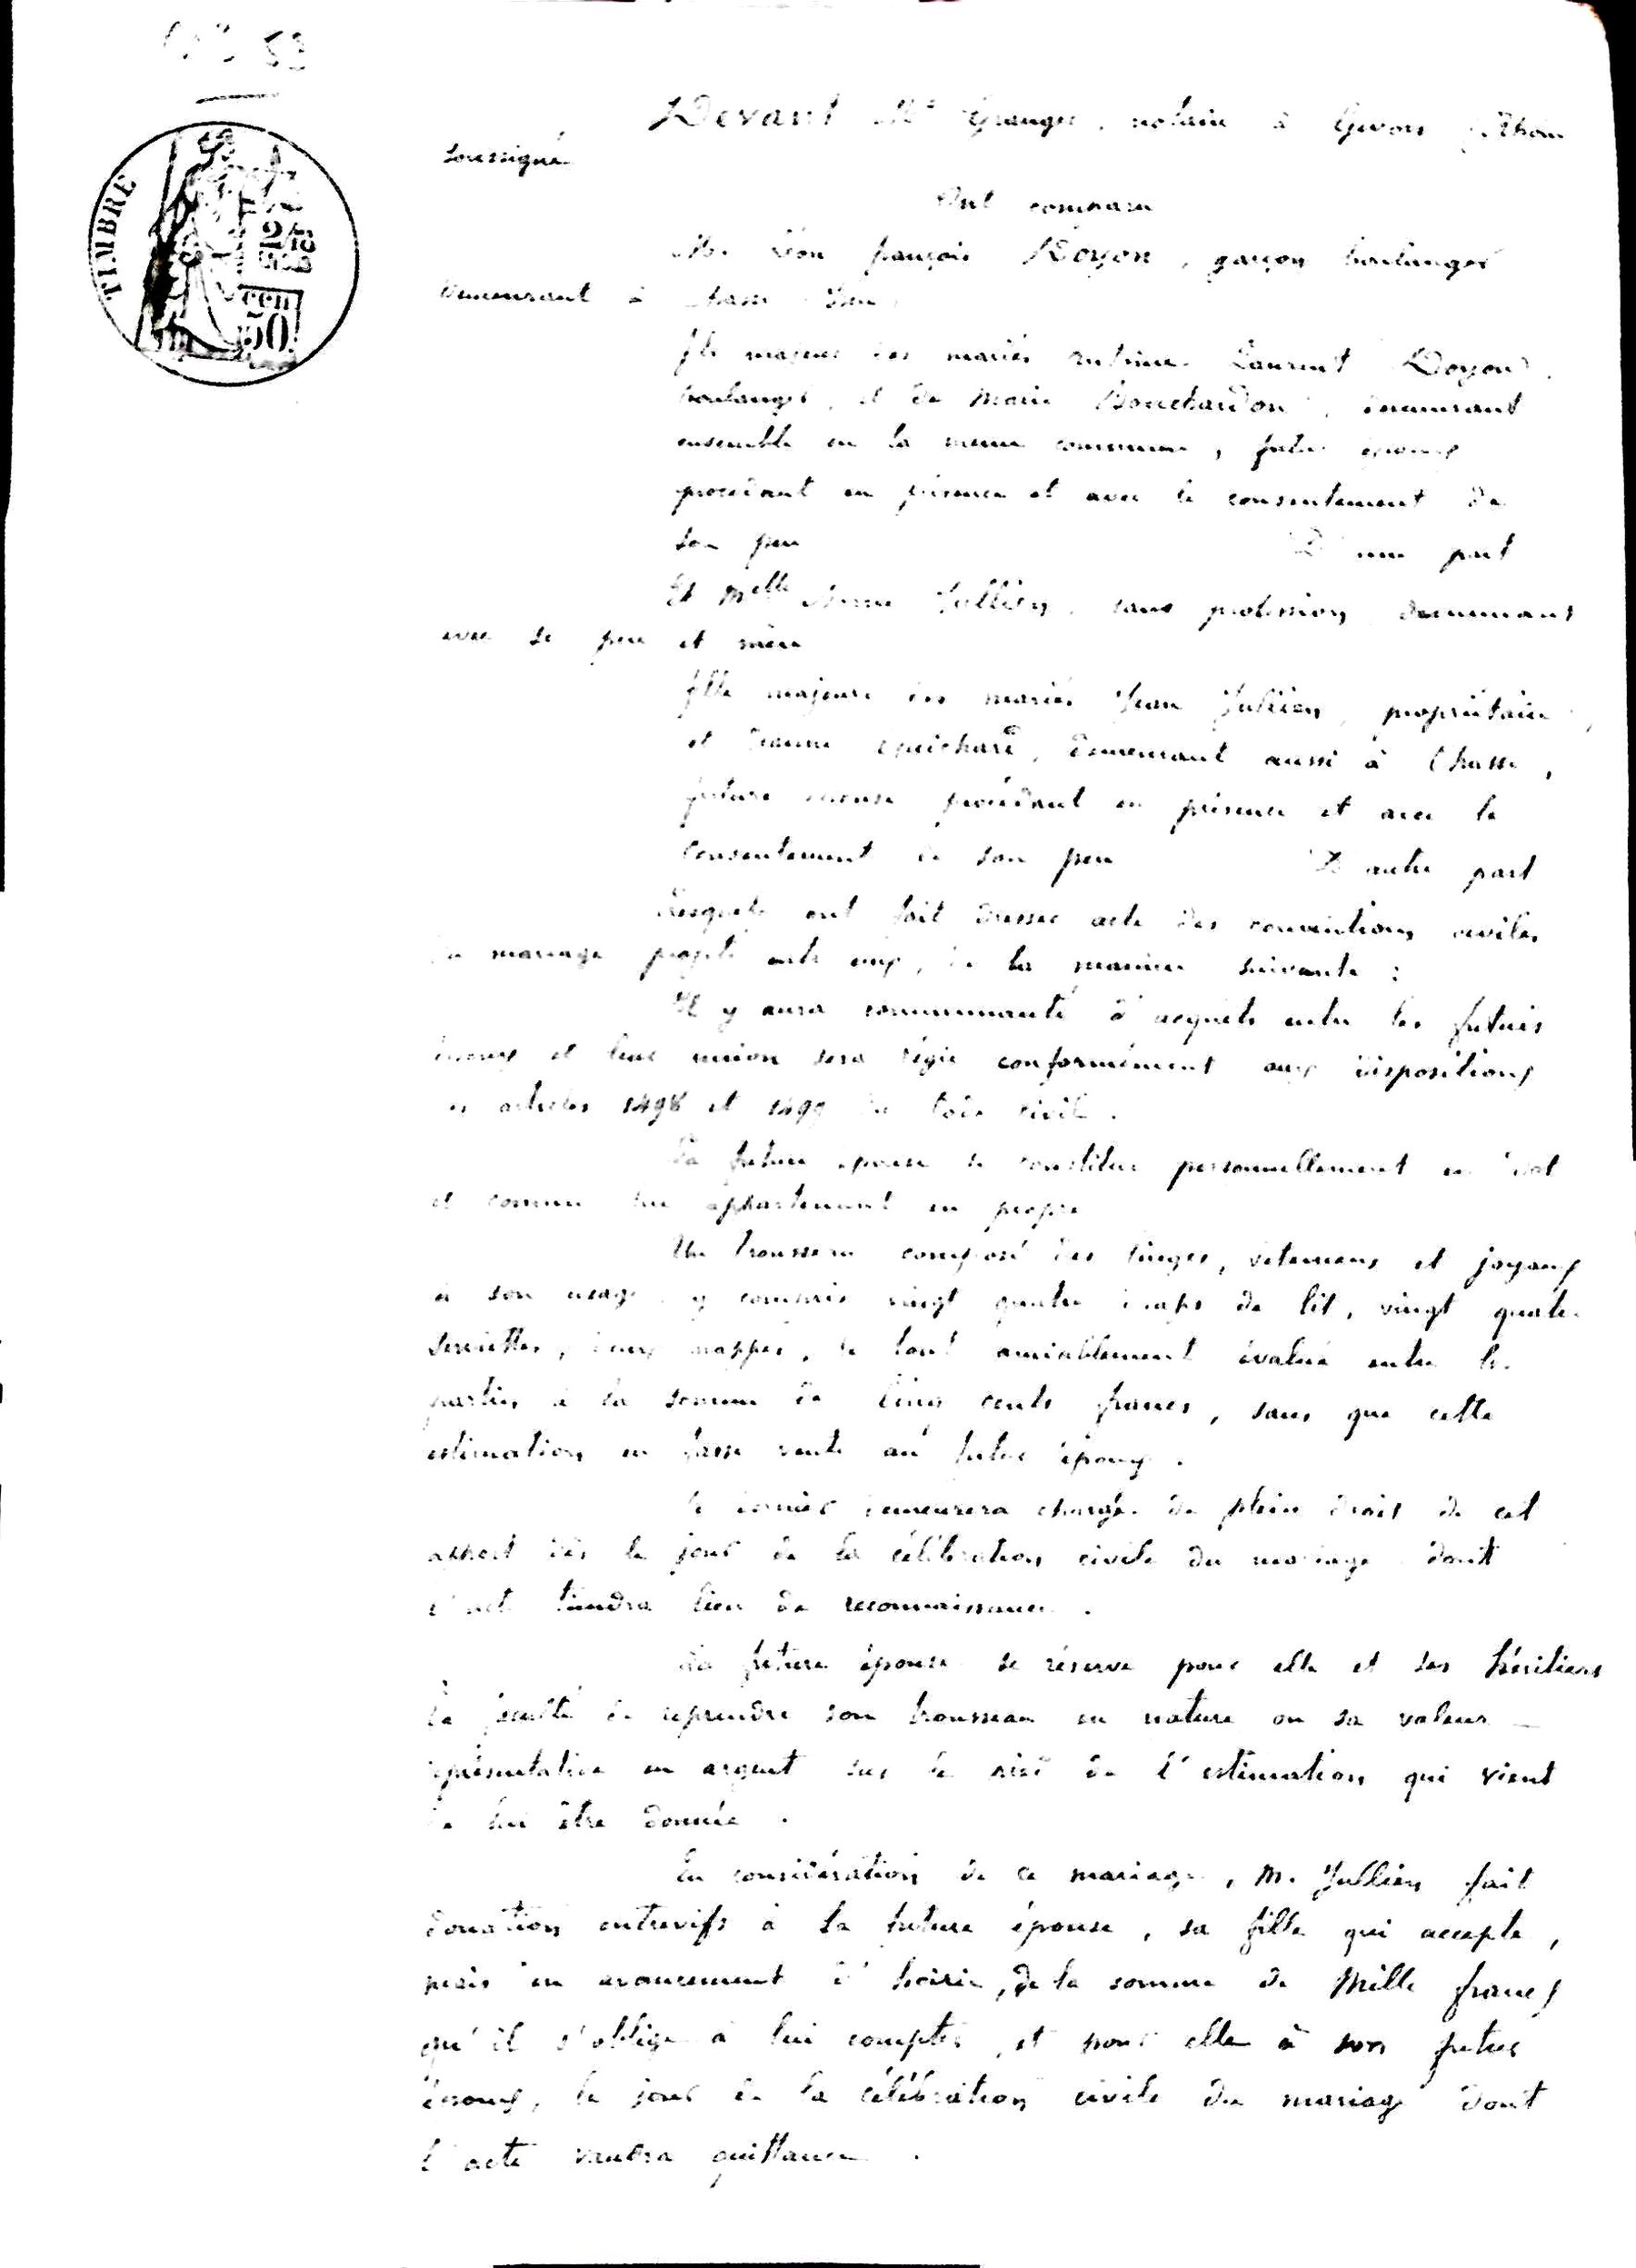 53
TIMBRE
2/10
cen
50
Devant Me Granger, notaire à Givors Rhône
soussigné
Ont comparu
Mr. Léon françois Doyon, garçon boulanger
demeurant à Chasse Isère
fils majeur des mariés Antoine Laurent Doyon,
boulanger, et de Marie Bouchardon, demeurant
ensemble en la même commune, futur époux
procédant en présence et avec le consentement de
son père D'une part
Et Melle Jullien, sans profession demeurant
avec se père et mère
fille majeure des mariés Jean Jullien, propriétaire,
et Jeanne Guichard, demeurant aussi à Chasse,
future épouse procédant en présence et avec le
Consentement de son père D'autre part
Lesquels ont fait dresser acte des conventions civiles
du mariage projeté entr eux, de la manière suivante :
Il y aura communauté d'acquêts entre les futurs
époux et leur union sera régie conformément aux dispositions
des articles 1498 et 1499 du Code civil.
La future épouse se constitue personnellement en dot
et comme lui appartenant en propre
Un trousseau composé des linges, vêtemens et joyaux
à son usage y compris vingt quatre draps de lit, vingt quatre
serviettes, deux nappes, le tout amiablement évalué entre les
parties à la somme de Cinq cents francs, sans que cette
estimation en fasse vente au futur époux.
Ce dernier demeurera chargé de plein droit de cet
apport dès le jour de la célébration civile du mariage dont
l'acte tiendra lieu de reconnaissance.
La future épouse se réserve pour elle et ses héritiers
la faculté de reprendre son trousseau en nature ou sa valeur
représentative en argent sur le pied de l'estimation qui vient
de lui être donnée.
En considération de ce mariage, M. Jullien fait
donation entrevifs à la future épouse, sa fille qui accepte,
mais en avancement d'hoirie, de la somme de Mille francs
qu'il s'oblige à lui compter, et pour elle à son futur
époux, le jour de la célébration civile du mariage dont
l'acte vaudra quittance.